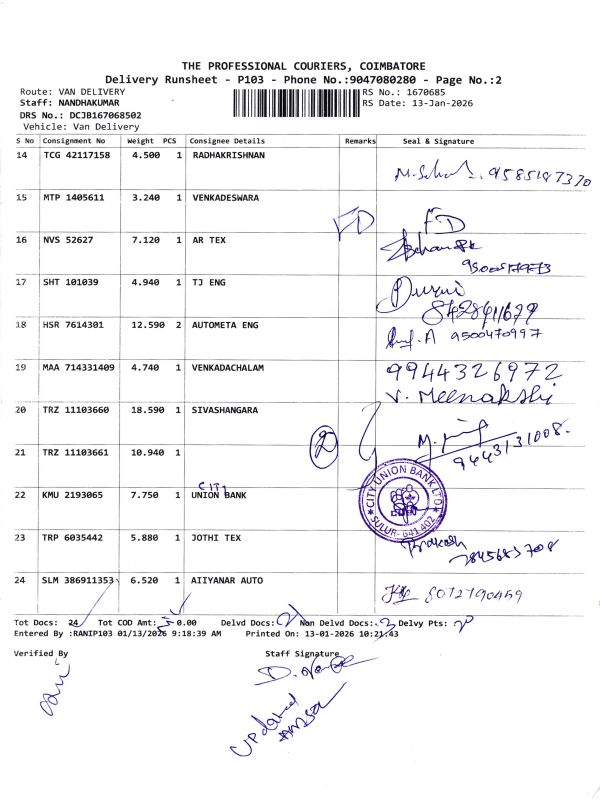 THE PROFESSIONAL COURIERS, COIMBATORE
Delivery Runsheet - P103 - Phone No.:9047080280 - Page No.:2
Route: VAN DELIVERY RS No.: 1670685
Staff: NANDHAKUMAR RS Date: 13-Jan-2026
DRS No.: DCJB167068502
Vehicle: Van Delivery
S No Consignment No Weight PCS Consignee Details Remarks Seal & Signature
14 TCG 42117158 4.500 1 RADHAKRISHNAN
9585187370
15 MTP 1405611 3.240 1 VENKADESWARA
FD FD
16 NVS 52627 7.120 1 AR TEX
17 SHT 101039 4.940 1 TJ ENG
18 HSR 7614301 12.590 2 AUTOMETA ENG
A 9500470997
19 MAA 714331409 4.740 1 VENKADACHALAM 9944326972
V. Meenakshi
20 TRZ 11103660 18.590 1 SIVASHANGARA
9443131008.
21 TRZ 11103661 10.940 1
2
CITY UNION BANK LTD
SULUR- 641 402
CITY
22 KMU 2193065 7.750 1 UNION BANK
23 TRP 6035442 5.880 1 JOTHI TEX
Prakash
24 SLM 386911353 6.520 1 AIIYANAR AUTO
8072790459
Tot Docs: 24 Tot COD Amt: 0.00 Delvd Docs: Non Delvd Docs: 3 Delvy Pts:
Entered By :RANIP103 01/13/2026 9:18:39 AM Printed On: 13-01-2026 10:21:43
Verified By Staff Signature
Updated